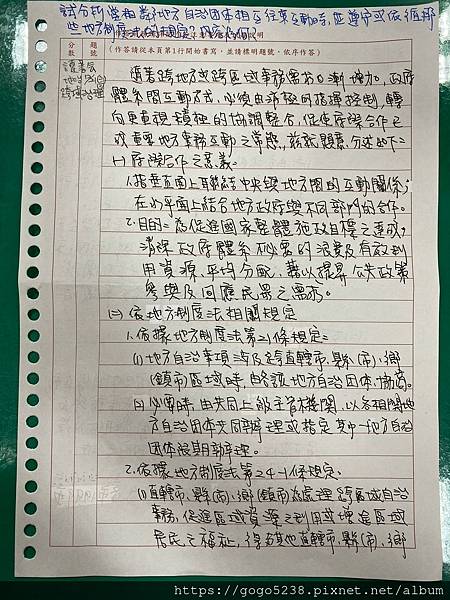 試分析當相鄰地方自治團體相互往來互動時，並遵守或依循那
些地方制度法的規定
分數
題號
(作答請從本頁第1行開始書寫，並請標明題號，依序作答)
跨域治理
隨著跨地方或跨區域事務需求日漸增加，政府
體系間互動方式，必須由消極的指揮控制，轉
向更重視積極的協調整合，促使府際合作已
成重要地方事務互動之常態，茲就題意，分述如下：
(一)府際合作之意義：
1.指垂直面上聯結中央與地方間的互動關係；
在水平面上結合地方政府與不同部門的合作。
2.目的：為促進國家整體施政目標之達成，
消弭政府體系不必要的浪費及有效利
用資源，平均分配，藉以提昇公共政策
參與及回應民眾之需求。
(二)依地方制度法相關規定
1.依據地方制度法第21條規定：
(1)地方自治事項涉及跨直轄市、縣(市)、鄉
(鎮市)區域時，由各該地方自治團體協商。
(2)必要時，由共同上級主管機關，以各相關地
方自治團體共同辦理或指定其中一地方自治
團體限期辦理。
2.依據地方制度法第24-1條規定、
(1)直轄市、縣(市)、鄉(鎮市)為處理跨區域自治
事務，促進區域資源之利用或增進區域
居民之福祉，得與其他直轄市、縣(市)、鄉
https://gogo5238.pixnet.net/album